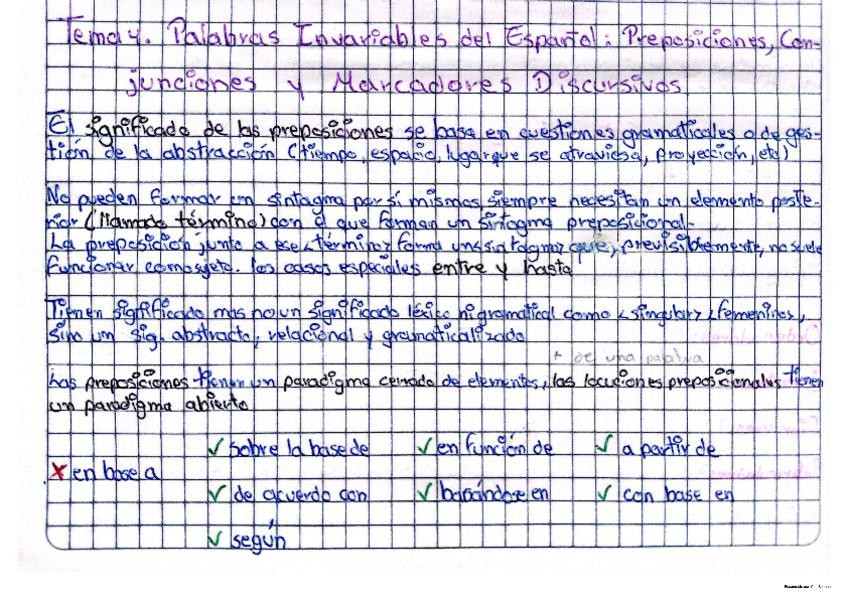 Tema 4. Palabras Invariables del Español: Preposiciones, Con-
junciones y Marcadores Discursivos
El significado de las preposiciones se basa en cuestiones gramaticales o de ges-
tión de la abstracción (tiempo, espacio, lugar que se atraviesa, proyección, etc)
No pueden formar un sintagma por sí mismas, siempre necesitan un elemento poste-
rior (llamado término) con el que forman un sintagma preposicional.
La preposición junto a ese <término> forma un <sintagma> que, previsiblemente, no suele
funcionar como sujeto. Los casos especiales entre y hasta
Tienen significado mas no un significado léxico ni gramatical como <singular> <femenino>,
sino un sig. abstracto, relacional y gramaticalizado
+ de una palabra
Las preposiciones tienen un paradigma cerrado de elementos, las locuciones preposicionales tienen
un paradigma abierto
✓ sobre la base de ✓ en función de ✓ a partir de
✗ en base a
✓ de acuerdo con ✓ basándose en ✓ con base en
✓ según